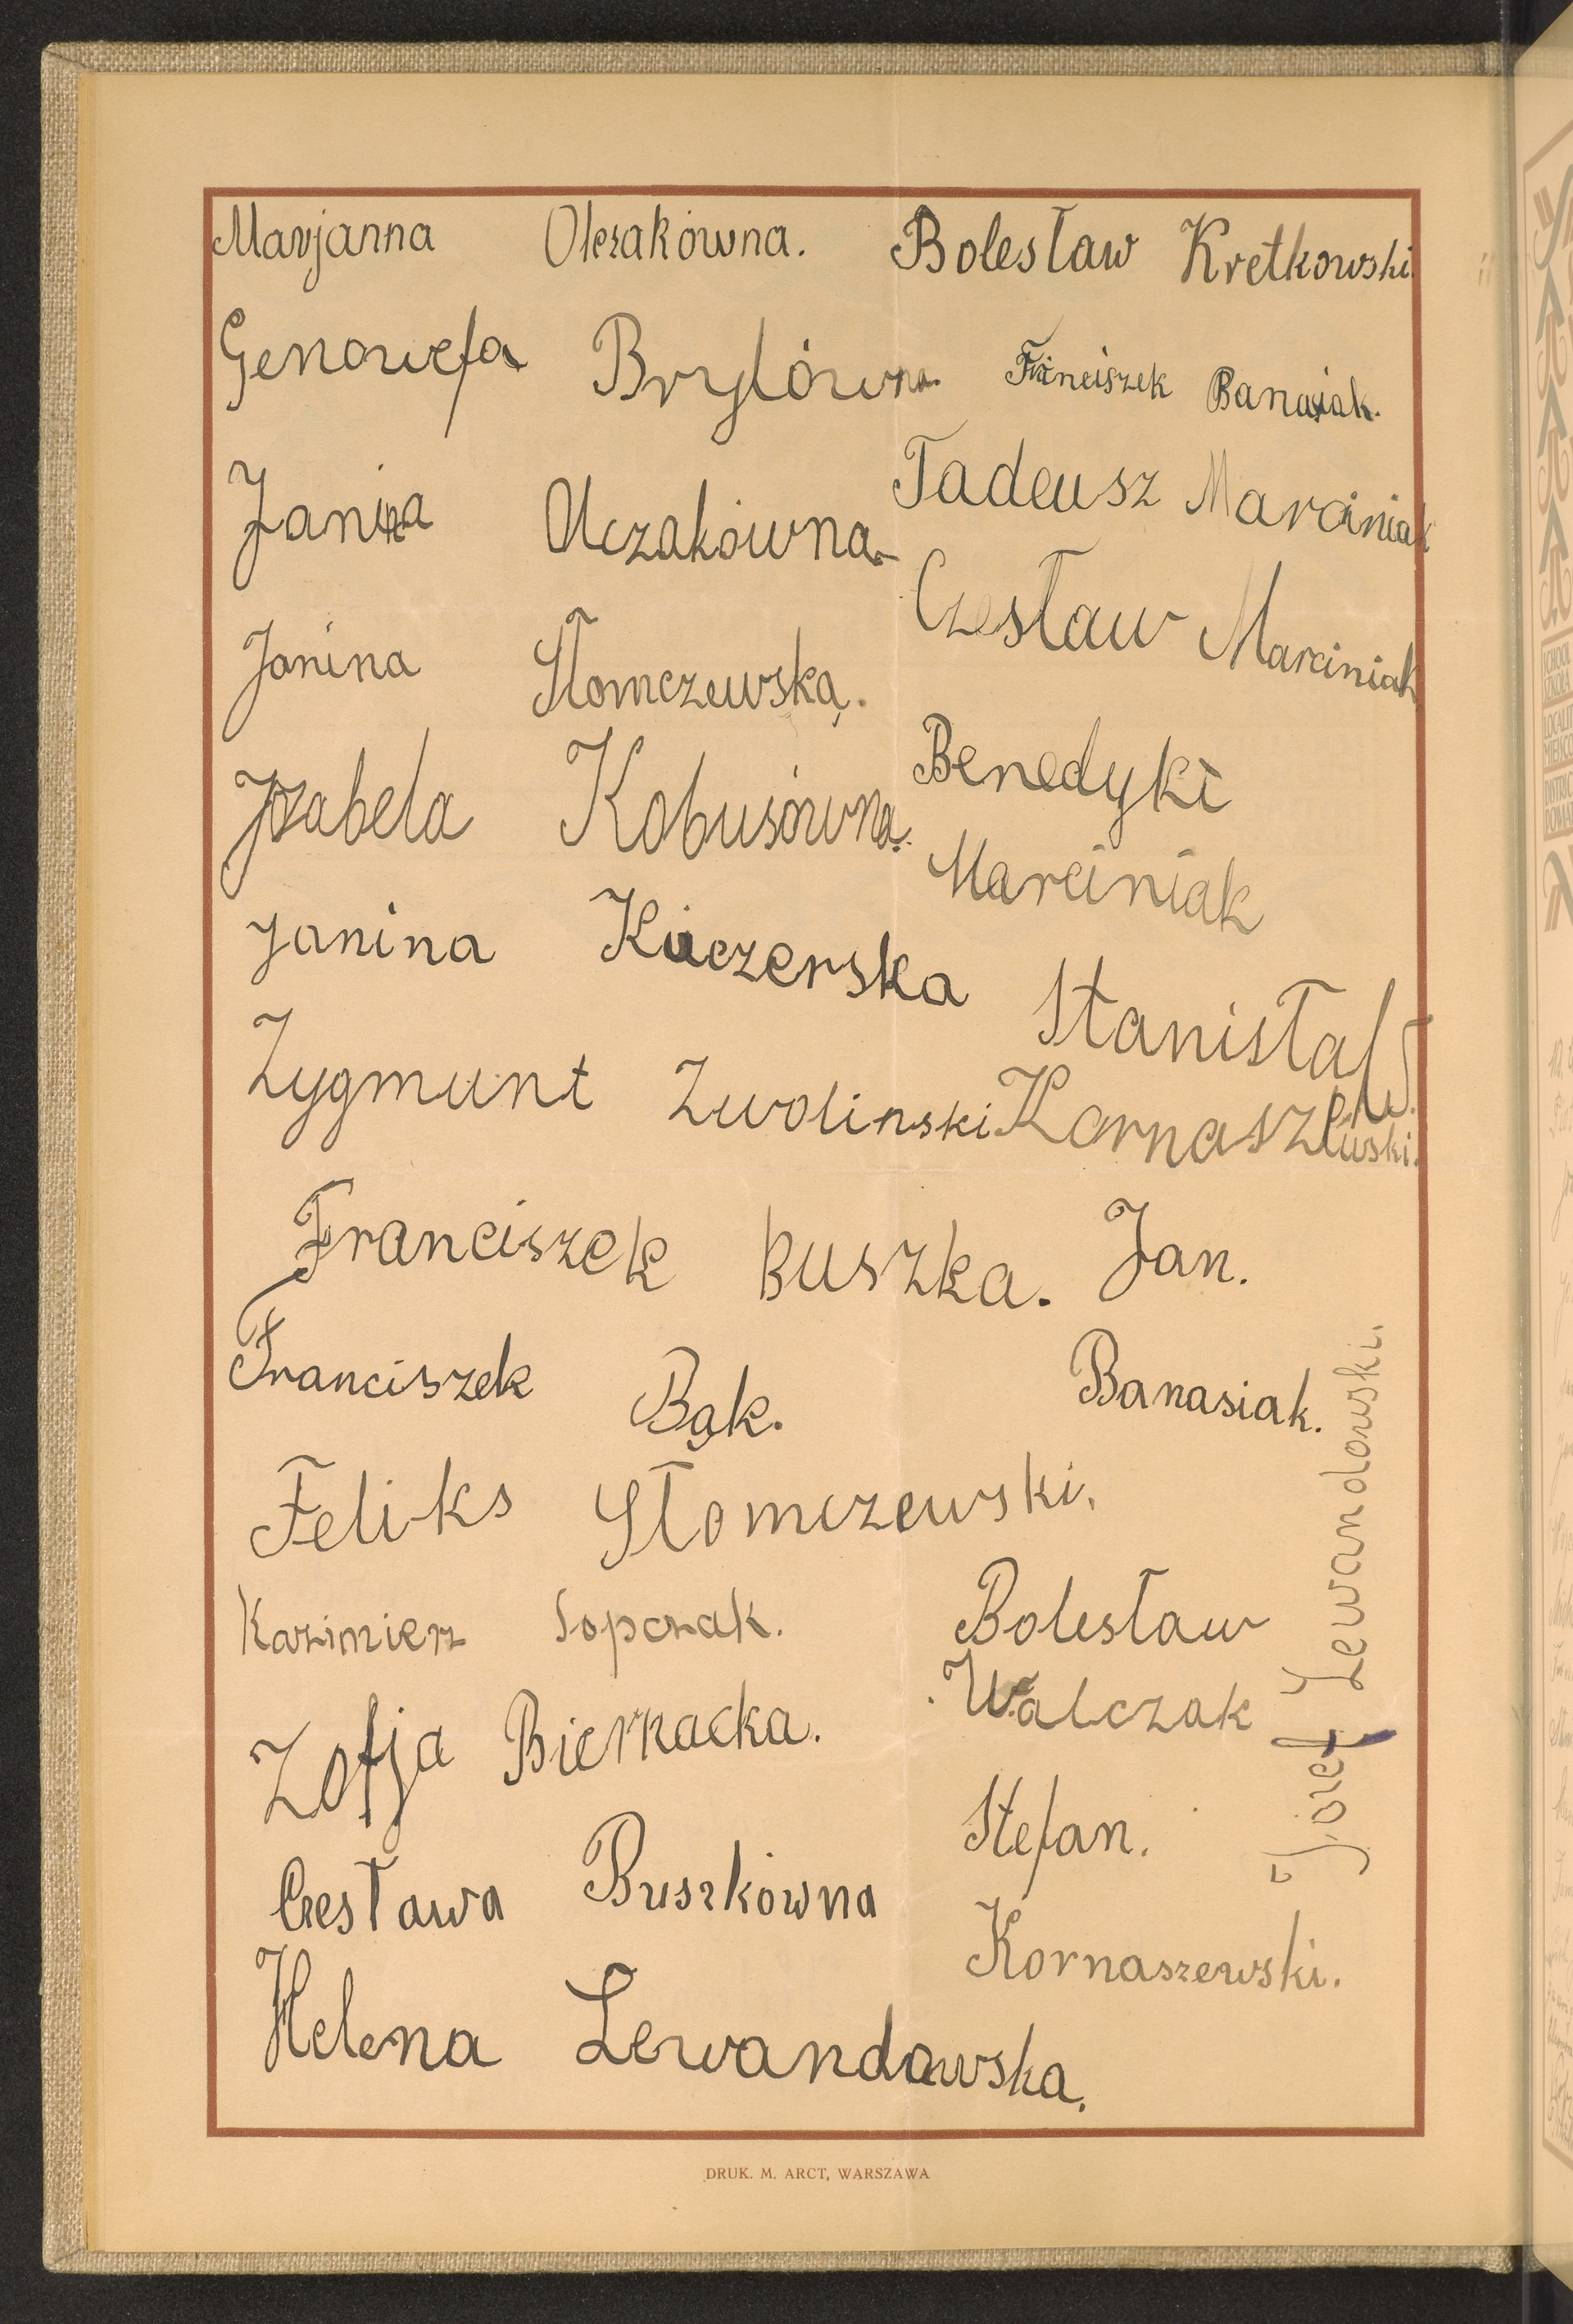 Marjanna Olczakówna.
Genowefa Brylówna.
Janina Olczakówna
Janina Słomczewska.
Izabela Kobusówna.
Janina Kuczerska
Zygmunt Zwolinski
Franciszek Buszka.
Franciszek Bąk.
Feliks Słomczewski.
Kazimierz Sopczak.
Zofja Biernacka.
Czesława Buszkówna
Helena Lewandowska.
Bolesław Kretkowski.
Franciszek Banasiak.
Tadeusz Marciniak
Czesław Marciniak
Benedykt
Marciniak
Stanisław
Kornaszewski.
Jan.
Banasiak.
Bolesław
Walczak
Stefan.
Kornaszewski.
Józef Lewandowski.
DRUK. M. ARCT, WARSZAWA
SCHOOL
SZKOŁA